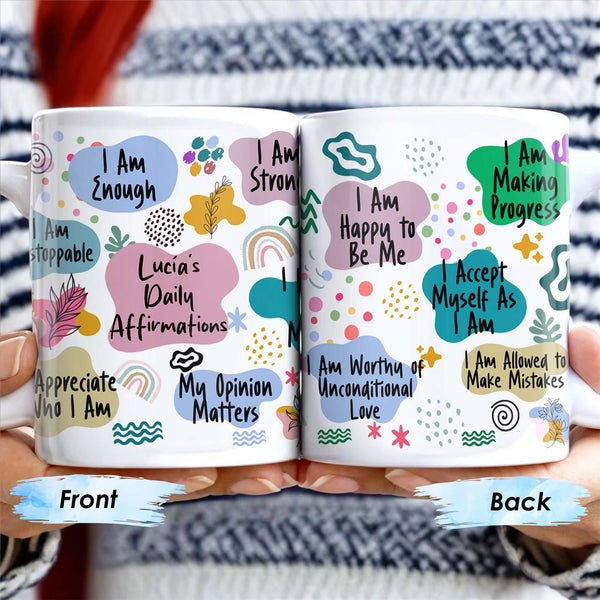 I Am
Enough
I Am
Stron
I Am
stoppable
Lucía's
Daily
Affirmations
I
M
Appreciate
Who I Am
My Opinion
Matters
I Am
Happy to
Be Me
I Am
Making
Progress
I Accept
Myself As
I Am
I Am Worthy of
Unconditional
Love
I Am Allowed to
Make Mistakes
Front
Back